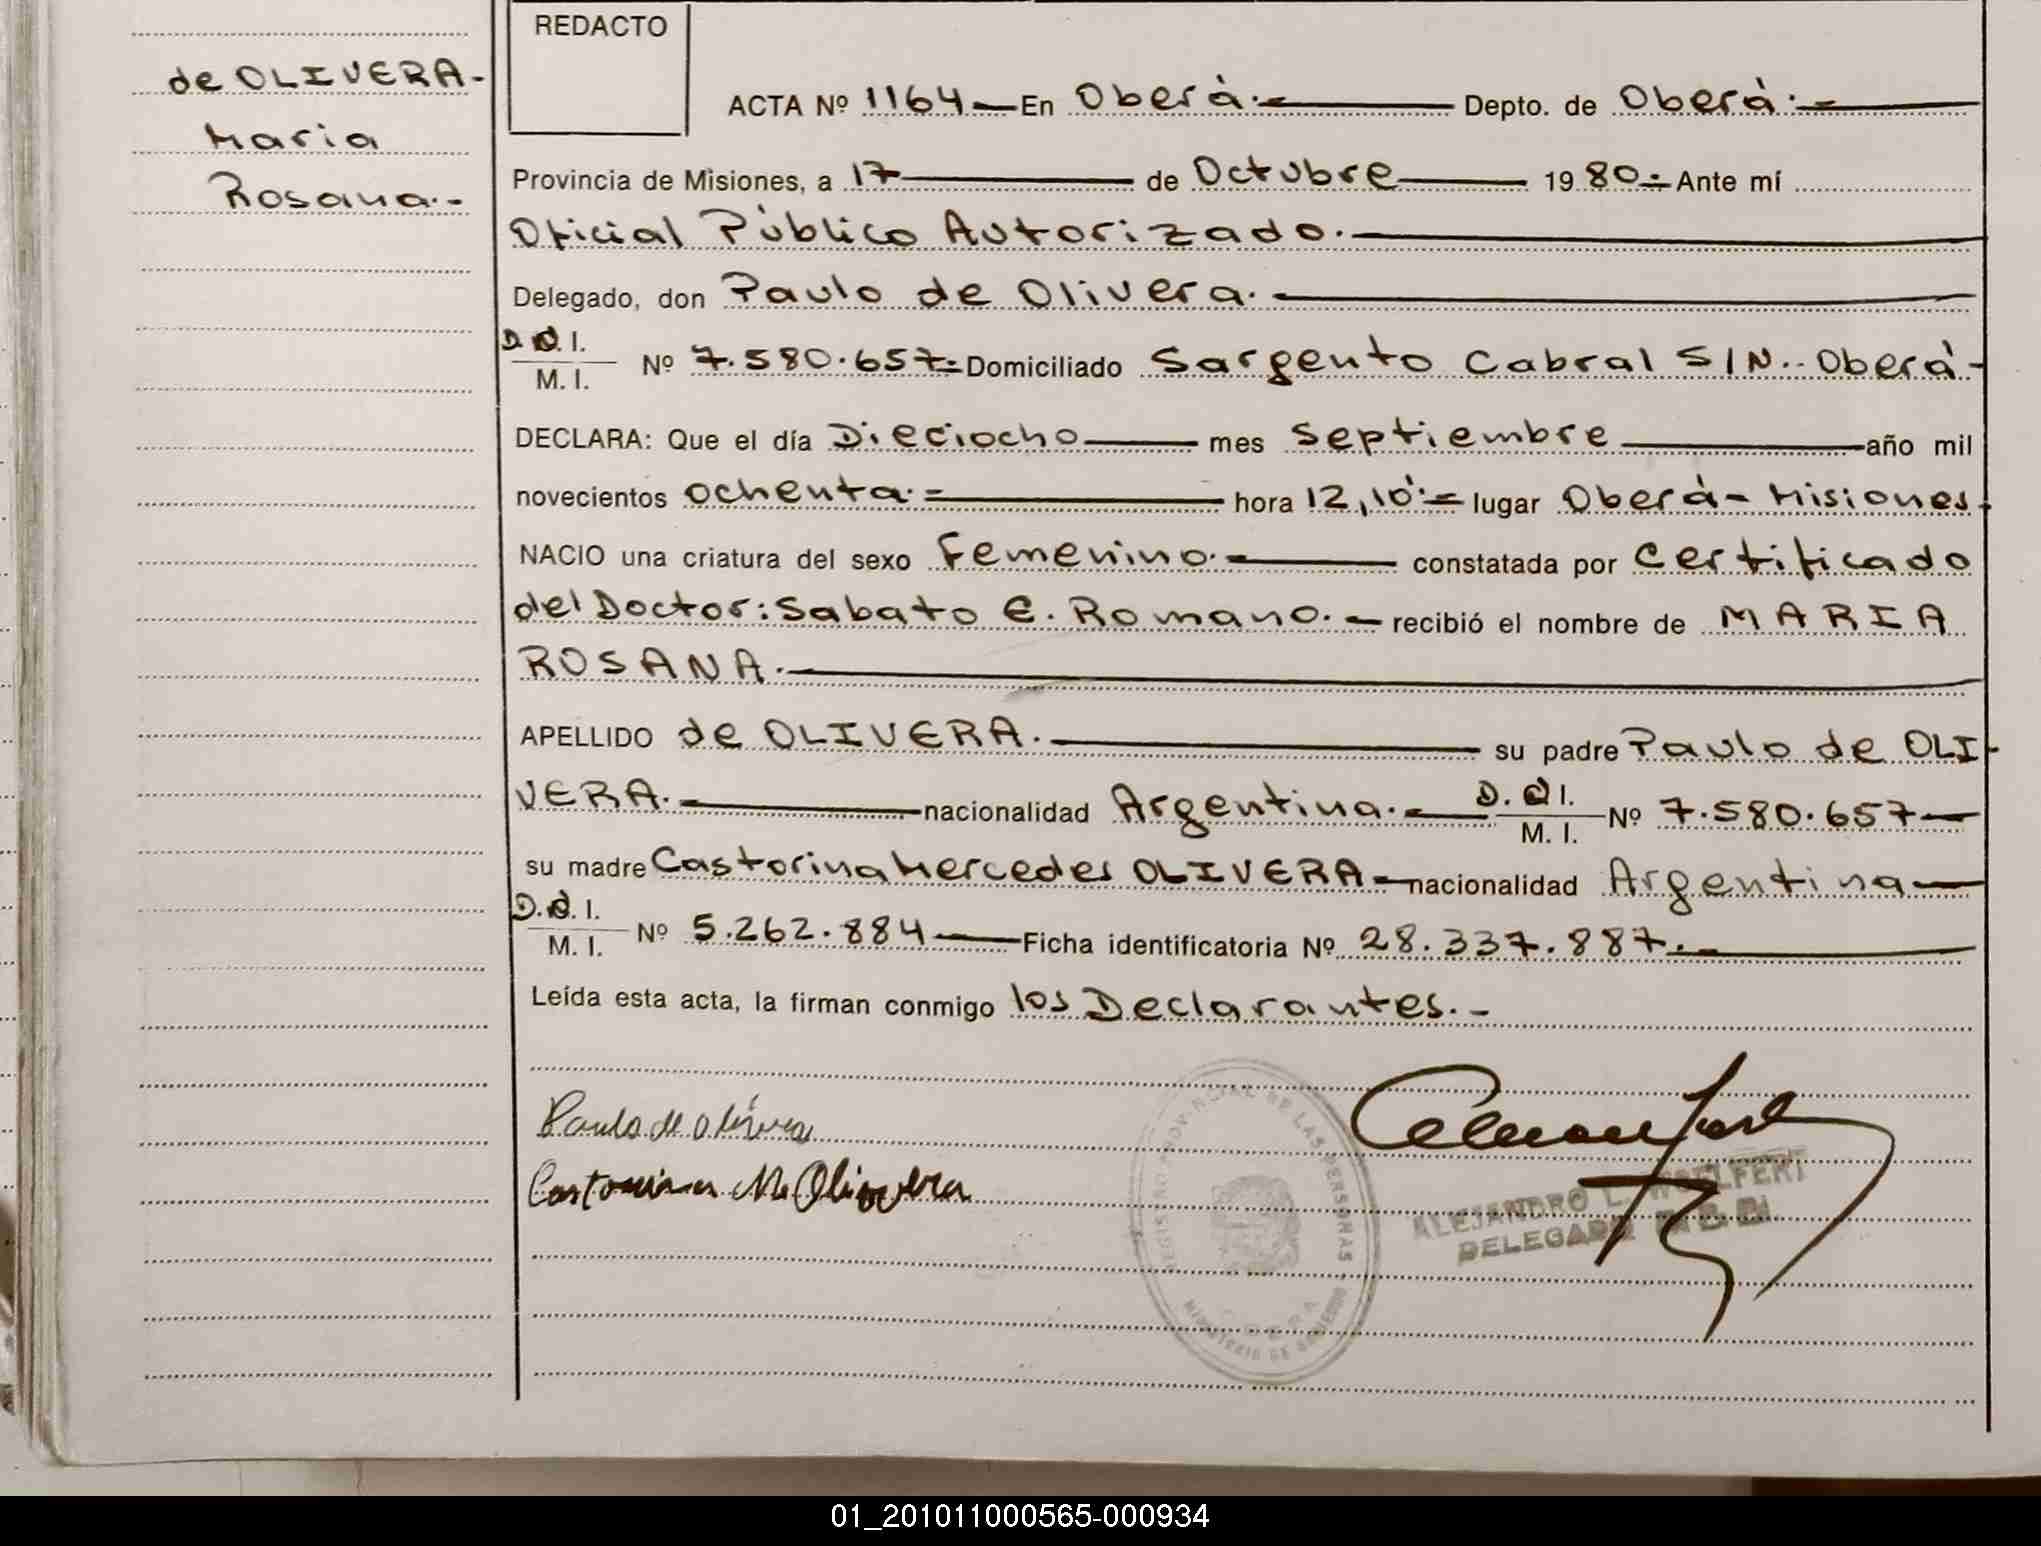 REDACTO
de OLIVERA-
Maria
Rosana.-
ACTA Nº 1164 En Oberá.- Depto. de Oberá.-
Provincia de Misiones, a 17 de Octubre 1980.- Ante mí
Oficial Público Autorizado.
Delegado, don Paulo de Olivera.
D. I.
M. I.
Nº 7.580.657.- Domiciliado Sargento Cabral S/N.- Oberá-
DECLARA: Que el día Dieciocho mes Septiembre año mil
novecientos ochenta.- hora 12,10.- lugar Oberá - Misiones.
NACIO una criatura del sexo Femenino.- constatada por certificado
del Doctor: Sabato E. Romano.- recibió el nombre de MARIA
ROSANA.
APELLIDO de OLIVERA. su padre Paulo de OLI-
VERA. nacionalidad Argentina.- D. I.
M. I.
Nº 7.580.657
su madre Castorina Mercedes OLIVERA nacionalidad Argentina
D. I.
M. I.
Nº 5.262.884 Ficha identificatoria Nº 28.337.887.
Leída esta acta, la firman conmigo los Declarantes.-
Paulo de Olivera
Castorina M. Olivera
REGISTRO PROVINCIAL DE LAS PERSONAS
MINISTERIO DE GOBIERNO
ALEJANDRO L. WOELFERT
DELEGADO
01_201011000565-000934